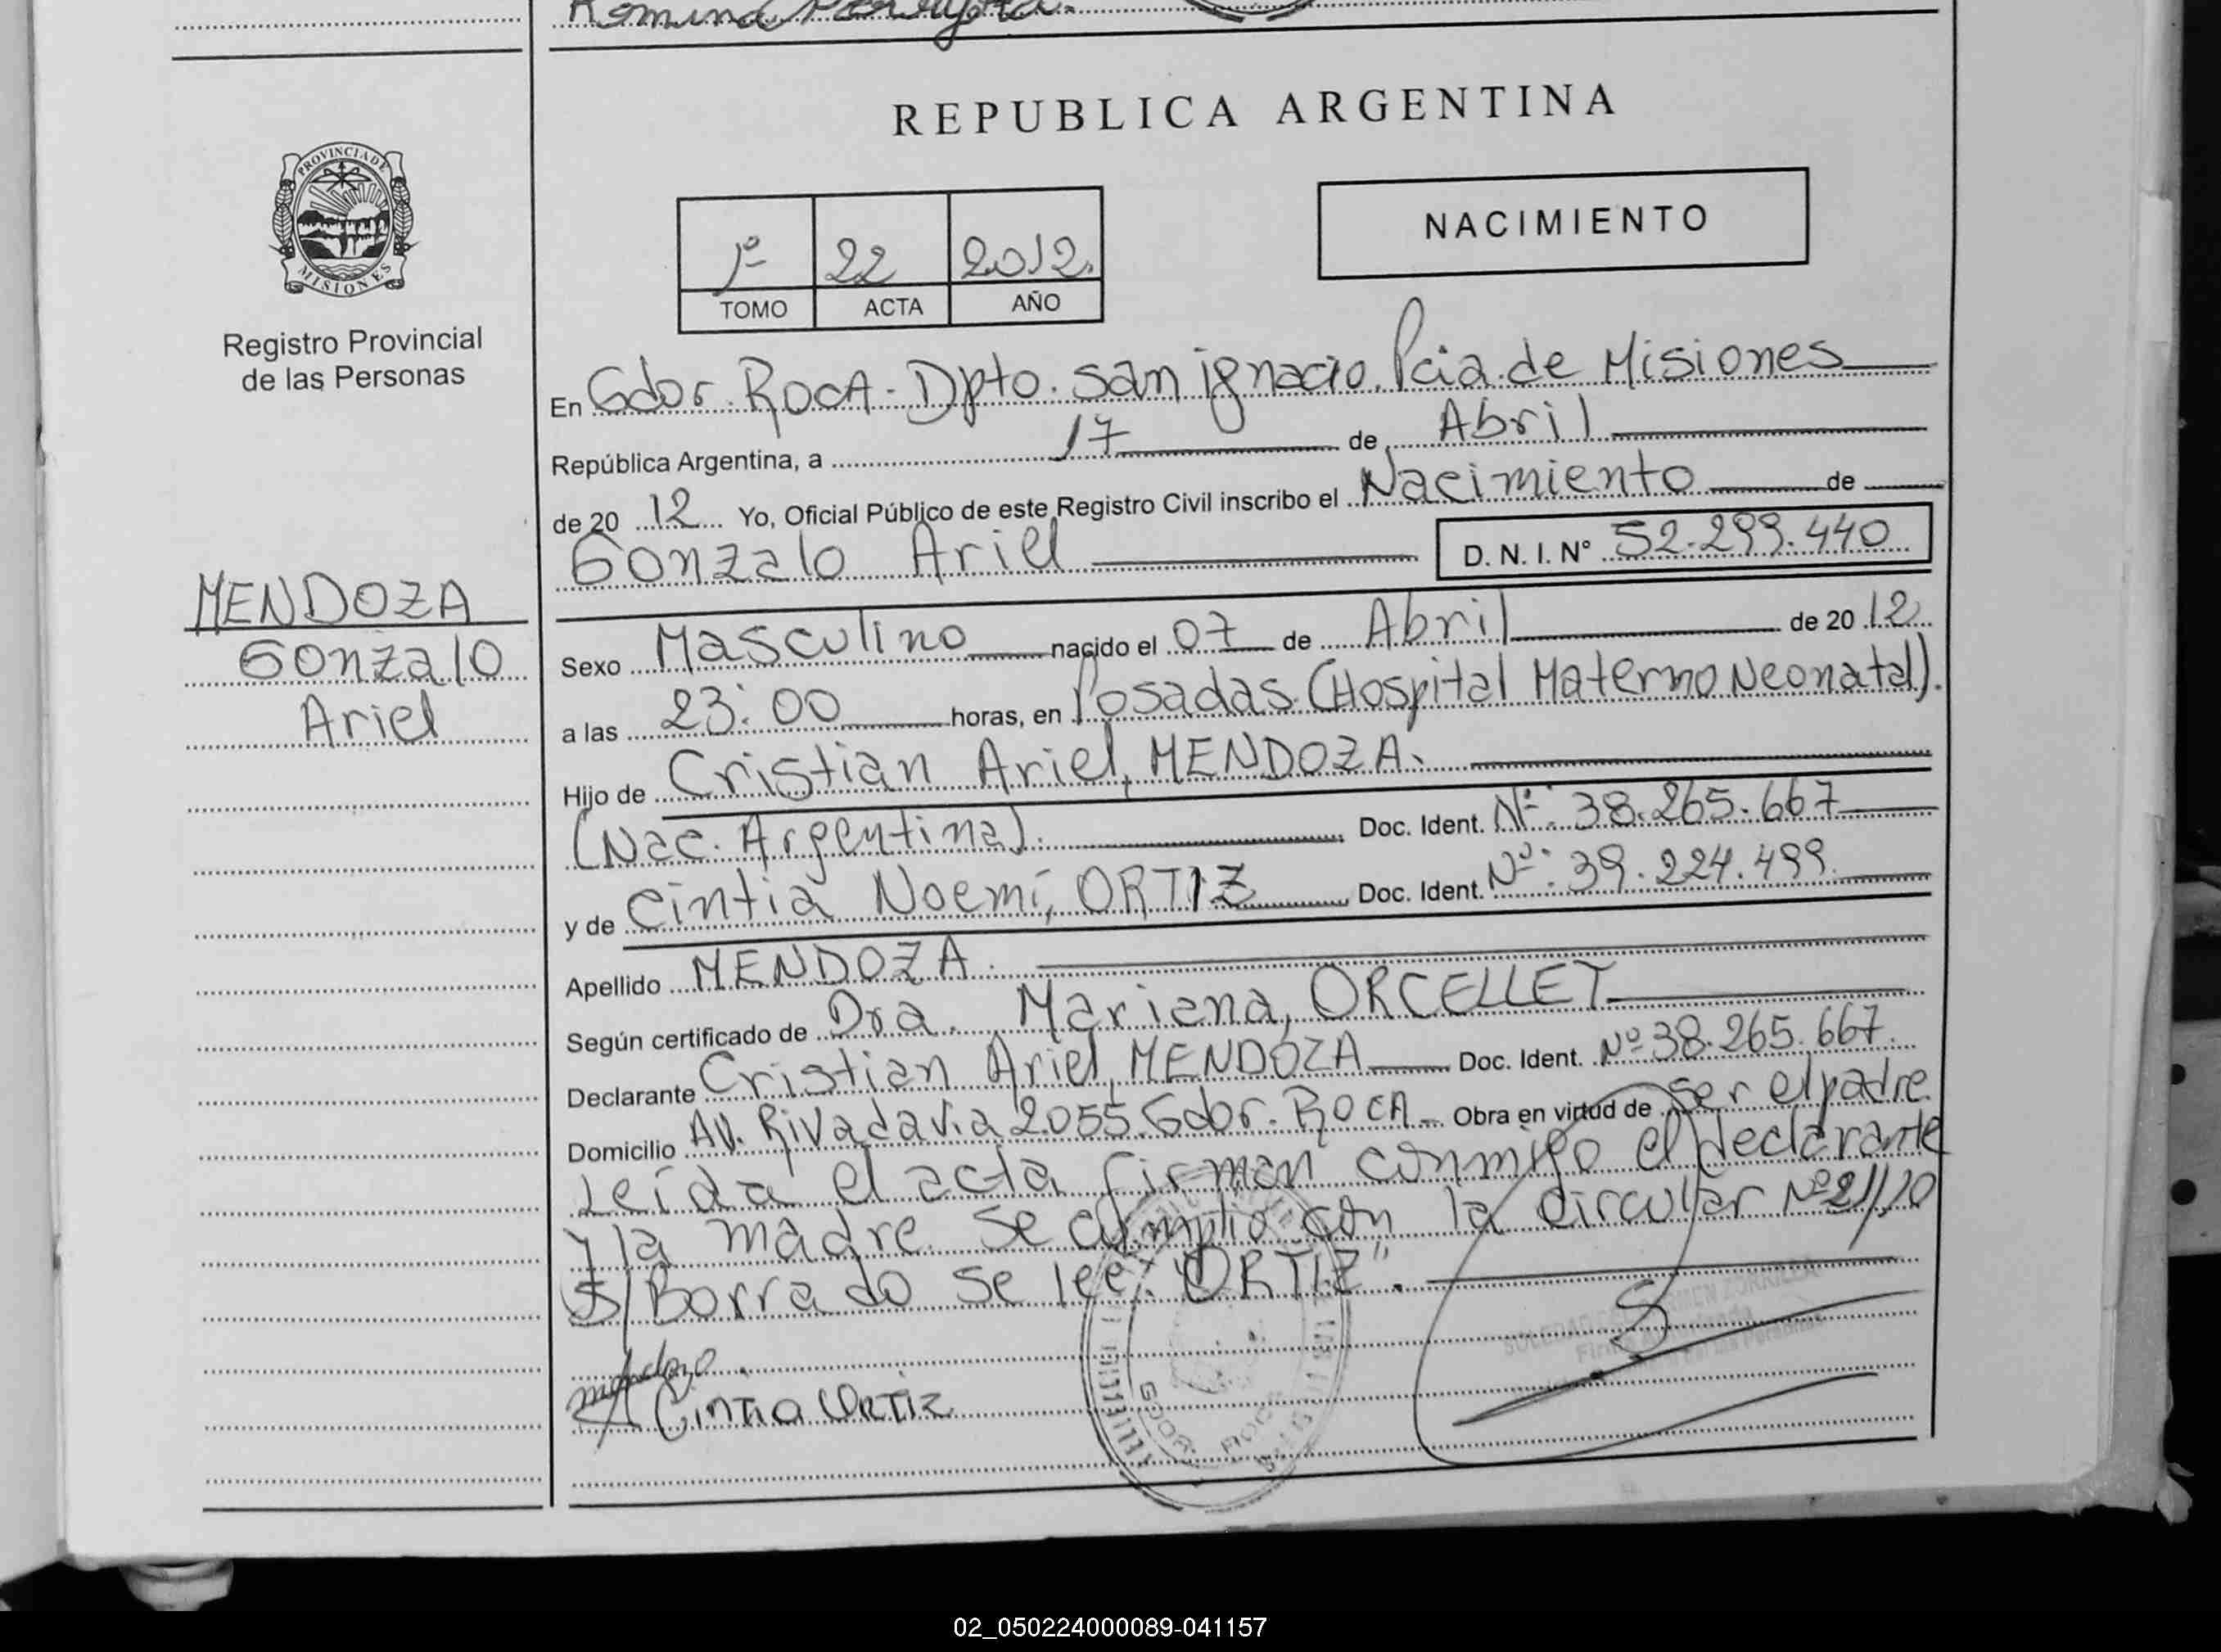 Romina
REPUBLICA ARGENTINA
PROVINCIA DE
MISIONES
Registro Provincial
de las Personas
1º 22 2012.
TOMO ACTA AÑO
NACIMIENTO
En Gdor. ROCA - Dpto. San ignacio. Pcia de Misiones
República Argentina, a 17 de Abril
de 20 12 Yo, Oficial Público de este Registro Civil inscribo el Nacimiento de
Gonzalo Ariel D. N. I. Nº 52.299.440
MENDOZA
Gonzalo
Ariel
Sexo Masculino nacido el 07 de Abril de 20 12
a las 23:00 horas, en Posadas (Hospital Materno Neonatal).
Hijo de Cristian Ariel, MENDOZA.
(Nac. Argentina). Doc. Ident. Nº: 38.265.667
y de Cintia Noemí, ORTIZ Doc. Ident. Nº: 39.224.499
Apellido MENDOZA.
Según certificado de Dra. Mariana, ORCELLET
Declarante Cristian Ariel, MENDOZA Doc. Ident. Nº 38.265.667.
Domicilio AV. Rivadavia 2055. Gdor. ROCA - Obra en virtud de ser el padre
Leida el acta firman conmigo el declarante
y la madre se cumplio con la circular Nº 21/10
S/Borrado se lee: "ORTIZ".
Cintia Ortiz
GDOR. ROCA
02_050224000089-041157